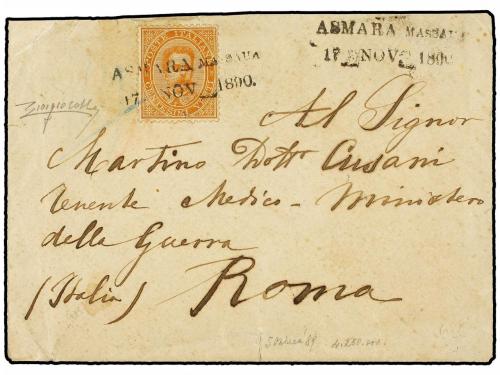 ASMARA MASSAUA
17 NOV 1890
POSTE ITALIANE
ASMARA MASSAUA
17 NOV 1890.
Al Signor
Martino Dott Cusani
Tenente Medico - Ministero
della Guerra
(Italia) Roma